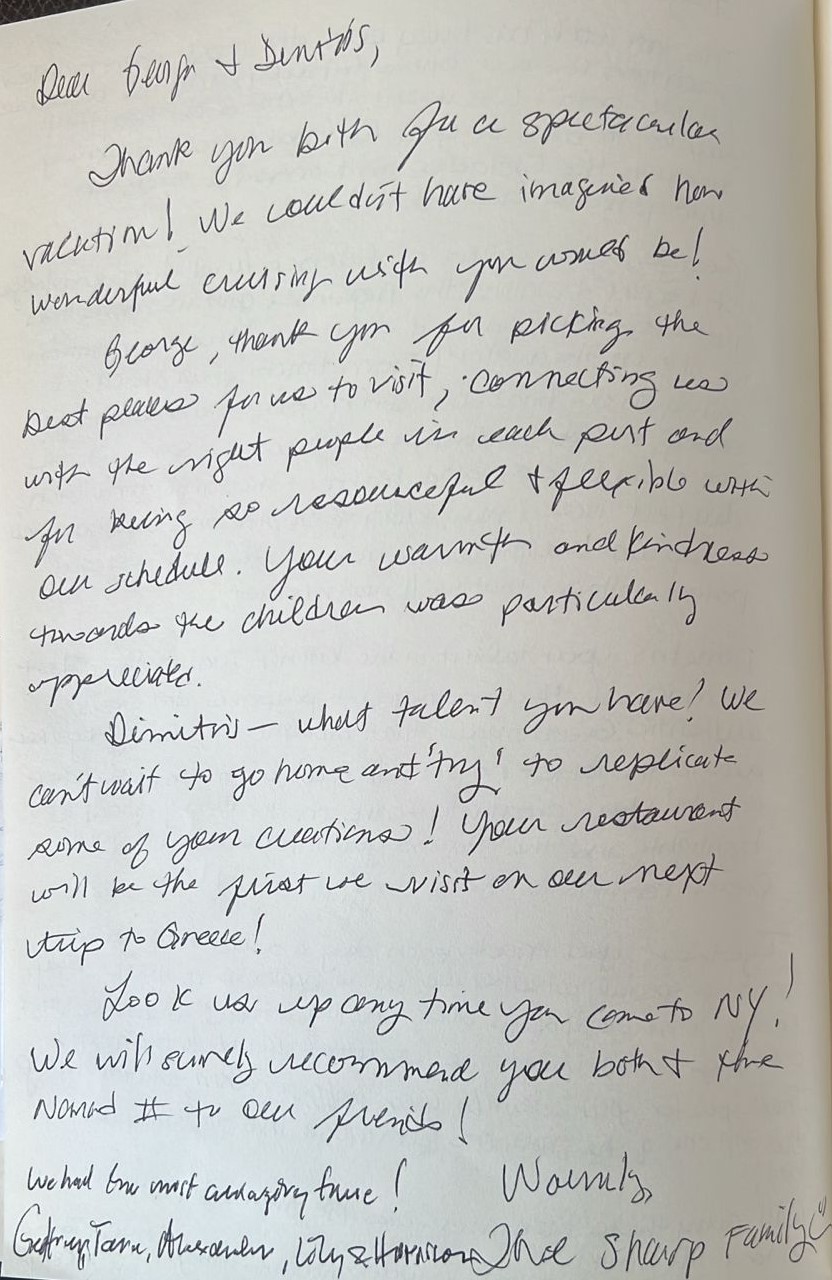 Dear George & Dimitris,
Thank you both for a spectacular
vacation! We couldn't have imagined how
wonderful cruising with you would be!
George, thank you for picking the
best places for us to visit, connecting us
with the right people in each port and
for being so resourceful & flexible with
our schedule. Your warmth and kindness
towards the children was particularly
appreciated.
Dimitris — what talent you have! We
can't wait to go home and "try" to replicate
some of your creations! Your restaurant
will be the first we visit on our next
trip to Greece!
Look us up any time you come to NY!
We will surely recommend you both & the
Nomad II to our friends!
We had the most amazing time! Warmly,
Alexander, Lily & Harrison The Sharp Family